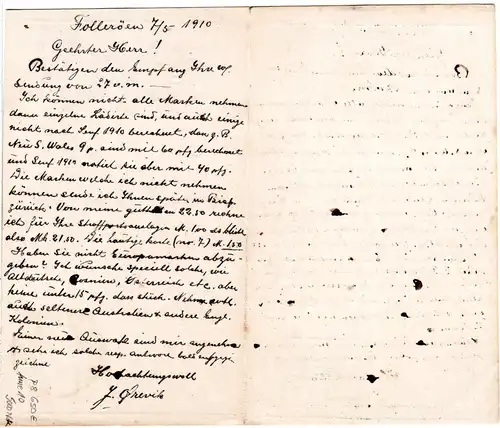 Folleröen 7/5 1910
Geehrter Herr!
Bestätigen den Empfang Ihre w.
Sendung von 27 v.m. —
Ich können nicht alle Marken nehmen
da einzelne sind, und auch einige
nicht nach Senf 1910 berechnet, dan z.B.
Neu S. Wales 9 p. sind mit 60 pfg berechnet
und Senf 1910 notirt sie aber mit 40 pfg.
Die Marken welche ich nicht nehmen
können sende ich Ihnen später im Brief
zurück. Von meine 22,50 nehme
ich für Ihre M. 1.00 das bleibt
also Mk. 21,50. Die heutige karte (no. 7.) M. 1.50
Haben Sie nicht Europamarken abzu-
geben? Ich wünsche speciell solche, wie
Altdeutsche, Bosnien, Österreich etc. aber
keine über 15 pfg. das stück. Nehme evtl.
auch seltenere Australien & andere Engl.
Kolonien.
neue Auswahl sind mir angenehm
& sehe ich solche resp. antwort
zeichne
Hochachtungsvoll
J. Grevik